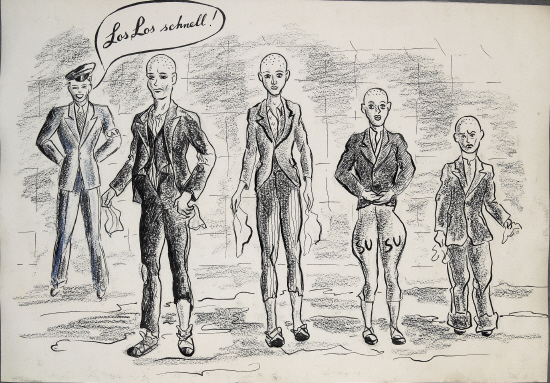 Los Los schnell!
SU SU